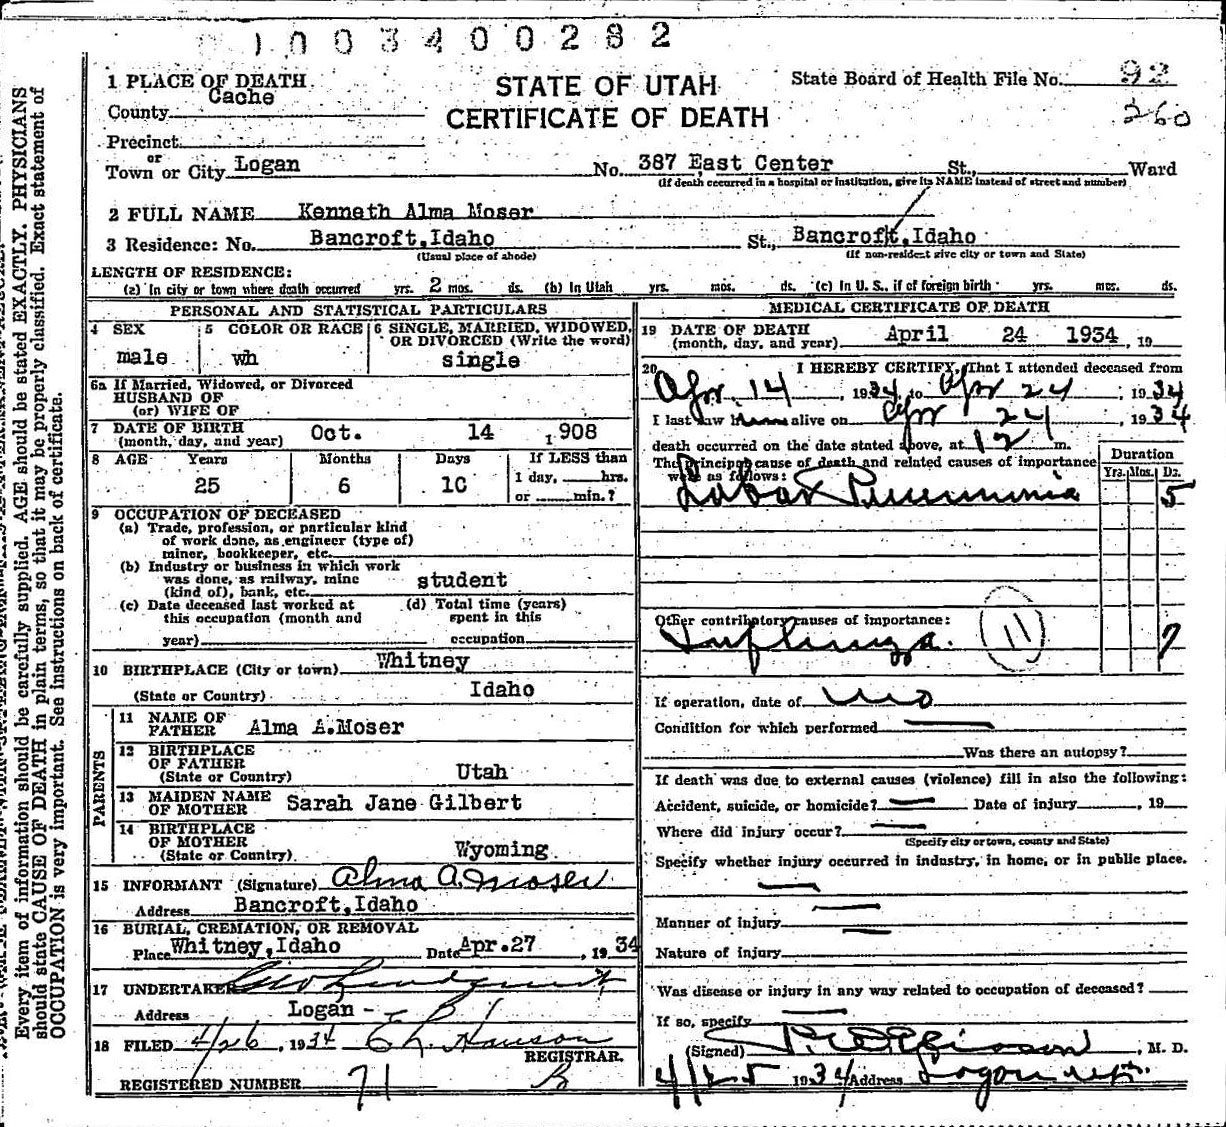 1003400282
STATE OF UTAH
CERTIFICATE OF DEATH
State Board of Health File No. 92
260
1 PLACE OF DEATH
County Cache
Precinct
or
Town or City Logan No. 387 East Center St., Ward
(If death occurred in a hospital or institution, give its NAME instead of street and number)
2 FULL NAME Kenneth Alma Moser
3 Residence: No. Bancroft,Idaho St., Bancroft,Idaho
(Usual place of abode) (If non-resident give city or town and State)
LENGTH OF RESIDENCE:
(a) In city or town where death occurred yrs. 2 mos. ds. (b) In Utah yrs. mos. ds. (c) In U. S., if of foreign birth yrs. mos. ds.
PERSONAL AND STATISTICAL PARTICULARS
4 SEX male
5 COLOR OR RACE wh
6 SINGLE, MARRIED, WIDOWED, OR DIVORCED (Write the word) single
6a If Married, Widowed, or Divorced
HUSBAND OF
(or) WIFE OF
7 DATE OF BIRTH (month, day, and year) Oct. 14 1908
8 AGE Years Months Days If LESS than
25 6 10 1 day, hrs.
or min.?
9 OCCUPATION OF DECEASED
(a) Trade, profession, or particular kind
of work done, as engineer (type of)
miner, bookkeeper, etc.
(b) Industry or business in which work
was done, as railway, mine student
(kind of), bank, etc.
(c) Date deceased last worked at (d) Total time (years)
this occupation (month and spent in this
year) occupation
10 BIRTHPLACE (City or town) Whitney
(State or Country) Idaho
PARENTS
11 NAME OF FATHER Alma A.Moser
12 BIRTHPLACE OF FATHER
(State or Country) Utah
13 MAIDEN NAME OF MOTHER Sarah Jane Gilbert
14 BIRTHPLACE OF MOTHER
(State or Country) Wyoming
15 INFORMANT (Signature) Alma A. Moser
Address Bancroft,Idaho
16 BURIAL, CREMATION, OR REMOVAL
Place Whitney,Idaho Date Apr.27, 1934
17 UNDERTAKER Geo Lindquist
Address Logan -
18 FILED 4/26, 1934 E L. Hanson
REGISTRAR.
REGISTERED NUMBER 71
MEDICAL CERTIFICATE OF DEATH
19 DATE OF DEATH (month, day, and year) April 24 1934, 19
20 I HEREBY CERTIFY, That I attended deceased from
Apr 14, 1934, to Apr 24, 1934
I last saw him alive on Apr 24, 1934
death occurred on the date stated above, at 12 m.
The principal cause of death and related causes of importance
were as follows:
Duration
Yrs. Mos. Ds.
Lobar Pneumonia 5
Other contributory causes of importance:
Influenza. 11 7
If operation, date of no
Condition for which performed
Was there an autopsy?
If death was due to external causes (violence) fill in also the following:
Accident, suicide, or homicide? Date of injury, 19
Where did injury occur?
(Specify city or town, county and State)
Specify whether injury occurred in industry, in home, or in public place.
Manner of injury
Nature of injury
Was disease or injury in any way related to occupation of deceased?
If so, specify
(Signed), M. D.
4/25 1934 Address Logan Ut.
Every item of information should be carefully supplied. AGE should be stated EXACTLY. PHYSICIANS
should state CAUSE OF DEATH in plain terms, so that it may be properly classified. Exact statement of
OCCUPATION is very important. See instructions on back of certificate.